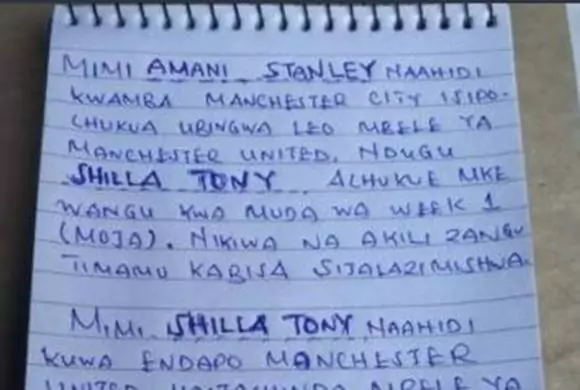 MIMI AMANI STANLEY NAAHIDI
KWAMBA MANCHESTER CITY ISIPO-
CHUKUA UBINGWA LEO MBELE YA
MANCHESTER UNITED, NDUGU
SHILLA TONY ACHUKUE MKE
WANGU KWA MUDA WA WEEK 1
(MOJA). NIKIWA NA AKILI ZANGU
TIMAMU KABISA SIJALAZIMISHWA.
MIMI SHILLA TONY NAAHIDI
KUWA ENDAPO MANCHESTER
UNITED HAITASHINDA MBELE YA